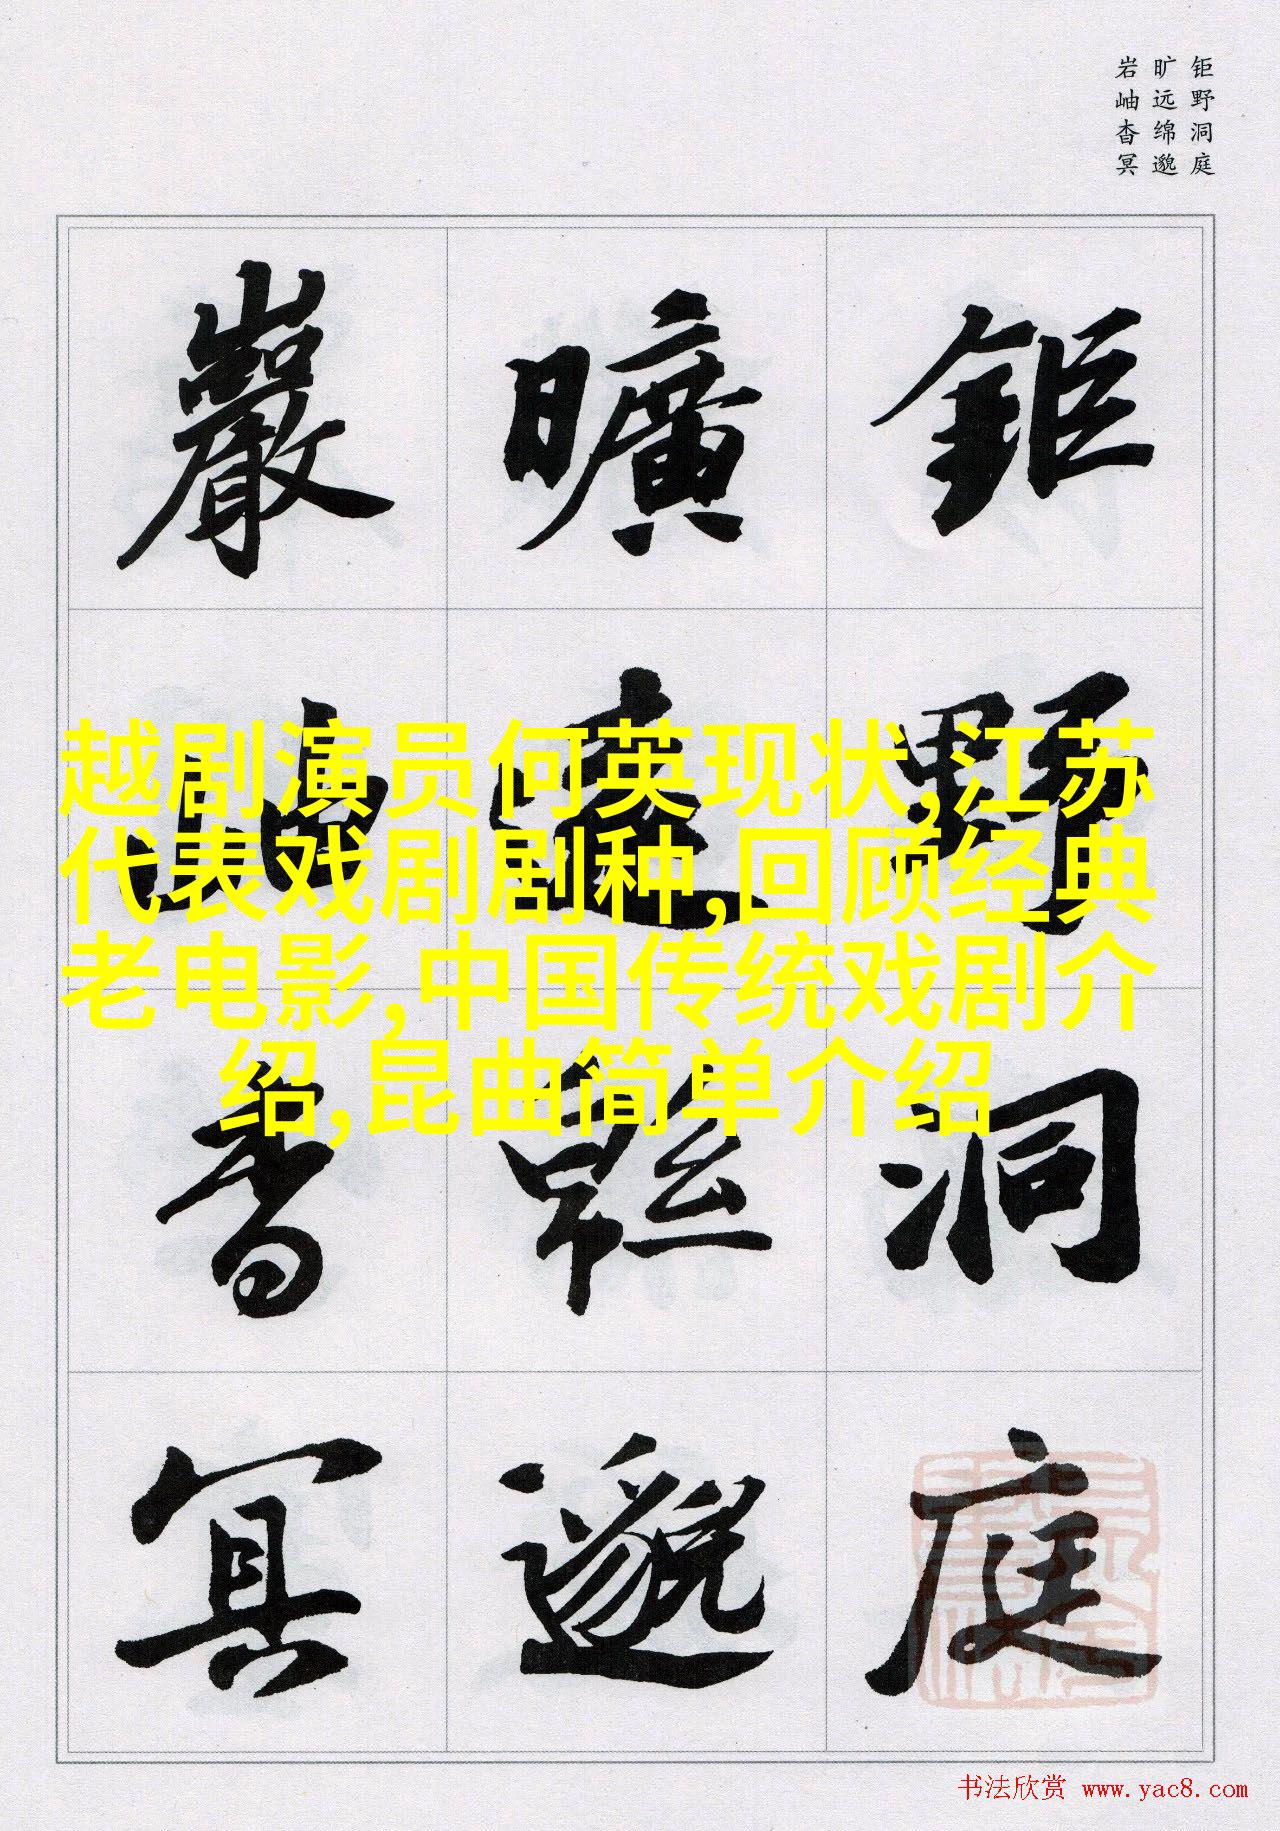 钜野洞庭
旷远绵邈
岩岫杳冥
鉅野洞庭
曠遠緜邈
巖岫杳冥
越剧演员何英现状,江苏
代表戏剧剧种,回顾经典
老电影,中国传统戏剧介
绍,昆曲简单介绍
书法欣赏 www.yac8.com